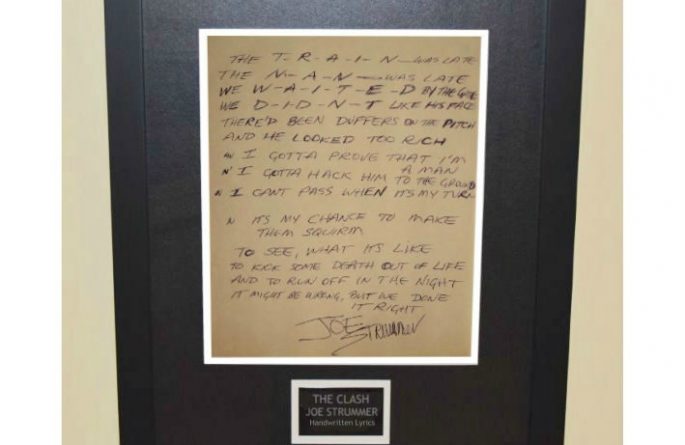 THE T-R-A-I-N-WAS LATE
THE M-A-N-WAS LATE
WE W-A-I-T-E-D BY THE GATE
WE D-I-D-N-T LIKE HIS FACE
THERE'D BEEN DUFFERS ON THE PITCH
AND HE LOOKED TOO RICH
AN I GOTTA PROVE THAT I'M A MAN
N' I GOTTA HACK HIM TO THE GROUND
N I CANT PASS WHEN ITS MY TURN
N ITS MY CHANCE TO MAKE
THEM SQUIRM
TO SEE, WHAT ITS LIKE
TO KICK SOME DEATH OUT OF LIFE
AND TO RUN OFF IN THE NIGHT
IT MIGHT BE WRONG, BUT WE DONE
IT RIGHT
JOE STRUMMER
THE CLASH
JOE STRUMMER
Handwritten Lyrics